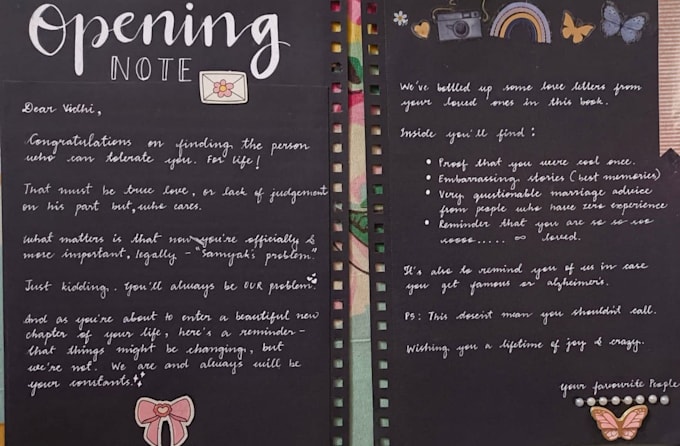 Opening
NOTE
Dear Vidhi,
Congratulations on finding the person
who can tolerate you. For life!
That must be true love, or lack of judgement
on his part but, who cares.
What matters is that now you're officially &
more important, legally - "Samyak's problem."
Just kidding. You'll always be OUR problem.
And as you're about to enter a beautiful new
chapter of your life, here's a reminder-
that things might be changing, but
we're not. We are and always will be
your constants.
We've bottled up some love letters from
your loved ones in this book.
Inside you'll find :
• Proof that you were cool once.
• Embarrassing stories (best memories)
• Very questionable marriage advice
from people who have zero experience
• Reminder that you are so so soo
soooo..... ∞ loved.
It's also to remind you of us in case
you get famous or alzheimer's.
PS: This doesn't mean you shouldn't call.
Wishing you a lifetime of joy & crazy.
your favourite People